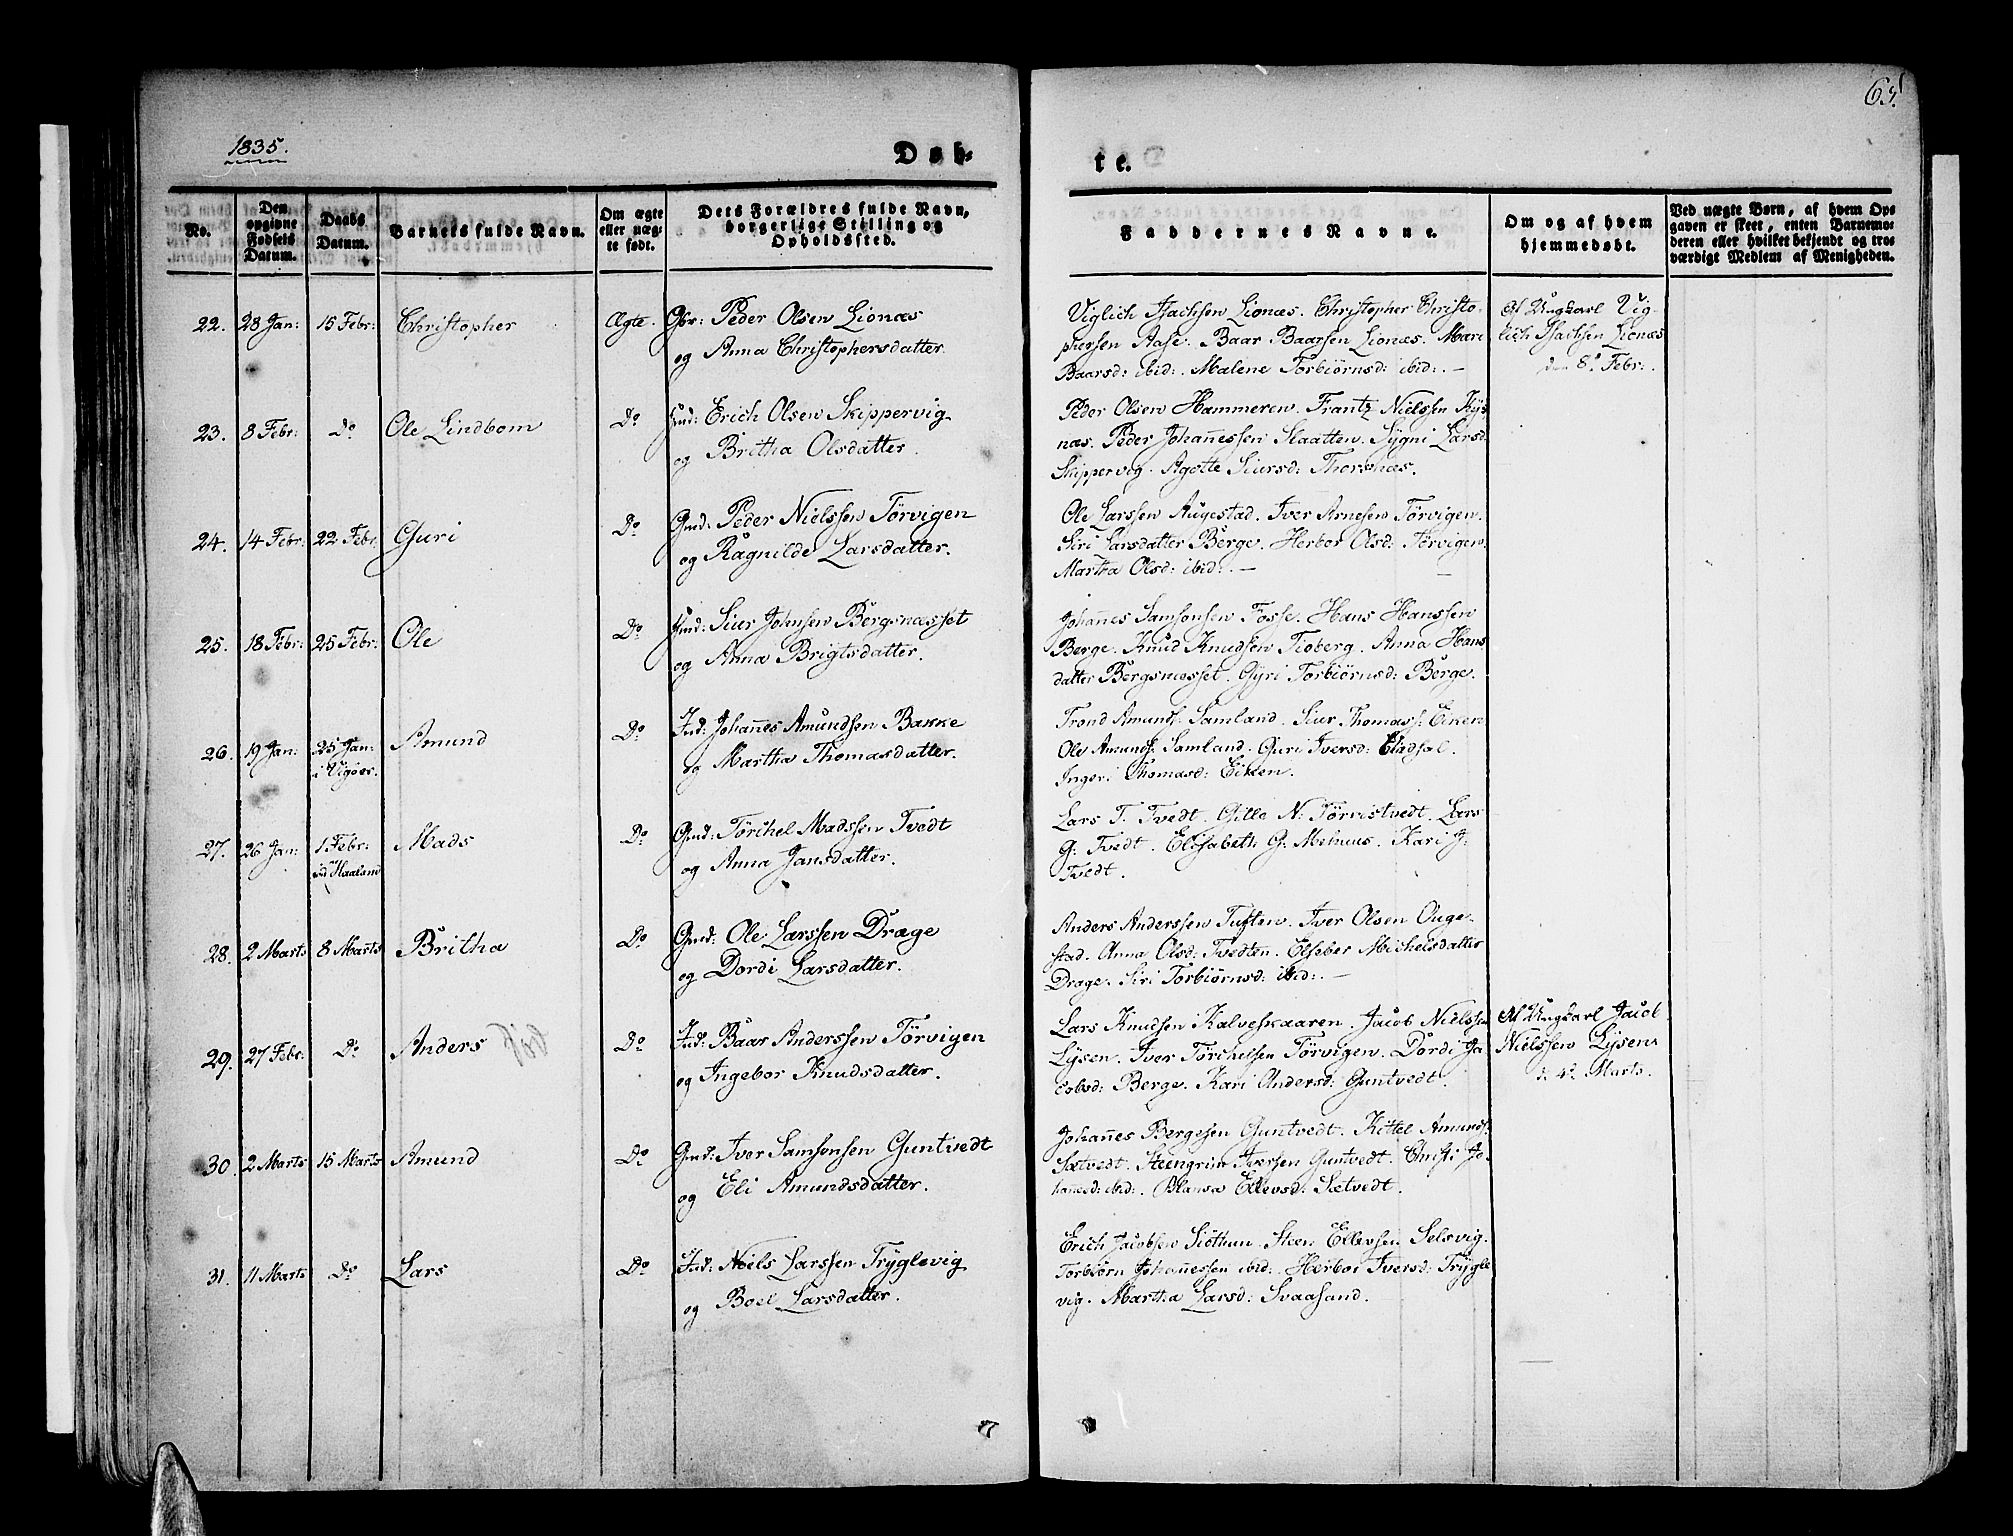 1835.
Døb-
te.
63.
No.
Den opgivne Fødsels Datum.
Daabs Datum.
Barnets fulde Navn.
Om ægte eller uægte født.
Dets Forældres fulde Navn, borgerlige Stilling og Opholdssted.
Faddernes Navne.
Om og af hvem hjemmedøbt.
Ved uægte Børn, af hvem Opgaven er skeet, enten Barnemoderen eller hvilket bekjendt og troværdigt Medlem af Menigheden.
22. 28 Jan: 15 Febr: Christopher Ægte. Peder Olsen Lionæs
og Anna Christophersdatter.
Viglich Isachsen Lionæs. Christopher Christo-
phersen Aase. Baar Baarsen Lionæs. Mari
Baarsd: ibid:. Malene Torbiörnsd: ibid:. —
Af Ungkarl Vig-
lich Isachsen Lionæs
den 8de Febr:.
23. 8 Febr: Do Ole Lindbom Do Erich Olsen Skippervig
og Britha Olsdatter.
Peder Olsen Hammeren. Frantz Nielssen
næs. Peder Johanessen Slaatten. Sygni Larsd:
Skippervig. Agotte Siursd: Thorsnæs.
24. 14 Febr: 22 Febr: Guri Do Gmd: Peder Nielssen Törvigen
og Ragnilde Larsdatter.
Ole Larssen Augestad. Iver Arnesen Törvigen.
Siri Larsdatter Berge. Herbor Olsd: Törvigen.
Martha Olsd: ibid:. —
25. 18 Febr: 25 Febr: Ole Do Siur Johnsen Bergsnæsset
og Anna Brigtsdatter.
Johanes Samsonsen Fosse. Hans Hanssen
Berge. Knud Knudsen Tioberg. Anna Hans
datter Bergsnæsset. Gyri Torbiörnsd: Berge.
26. 19 Jan: 25 Jan: i Vigöer. Amund Do Ind: Johanes Amundsen Bakke
og Martha Thomasdatter.
Trond Amunds: Samland. Siur Thomass: Eiken
Ole Amunds: Samland. Guri Iversd:
Ingeri Thomasd: Eiken.
27. 26 Jan: 1 Febr: Mads Do Gmd: Törchel Madssen Tvedt
og Anna Jansdatter.
Lars T. Tvedt. Gitle N: Lars
G: Tvedt. Elisabeth G: Melhuus. Kari J:
Tvedt.
28. 2 Marts 8 Marts Britha Do Gmd: Ole Larssen Drage
og Dordi Larsdatter.
Anders Anderssen Tuften. Iver Olsen Auge-
stad. Anna Olsd: Tvedten. Elseber Michelsdatter
Drage. Siri Torbiörnsd: ibid:. —
29. 27 Febr: Do Anders Do Ind: Baar Anderssen Törvigen
og Ingebor Knudsdatter.
Lars Knudsen Kalveskaaren. Jacob Nielssen
Lysen. Iver Törchelsen Törvigen. Dordi Ja-
cobsd: Berge. Kari Andersd: Guntvedt.
Af Ungkarl Jacob
Nielssen Lysen
d. 4de Marts.
30. 2 Marts 15 Marts Amund Do Gmd: Iver Samsonsen Guntvedt
og Eli Amundsdatter.
Johanes Bergesen Guntvedt. Kittel Amunds:
Sætvedt. Steengrim Iversen Guntvedt. Christi Jo-
hanesd: ibid:. Blansa Ellevsd: Sætvedt.
31. 11 Marts Do Lars Do Ind: Niels Larssen Tryglevig
og Boel Larsdatter.
Erich Jacobsen Siöthun. Steen Ellevsen Selsvig.
Torbiörn Johanessen ibid:. Herbor Iversd: Trygle
vig. Martha Larsd: Svaasand.